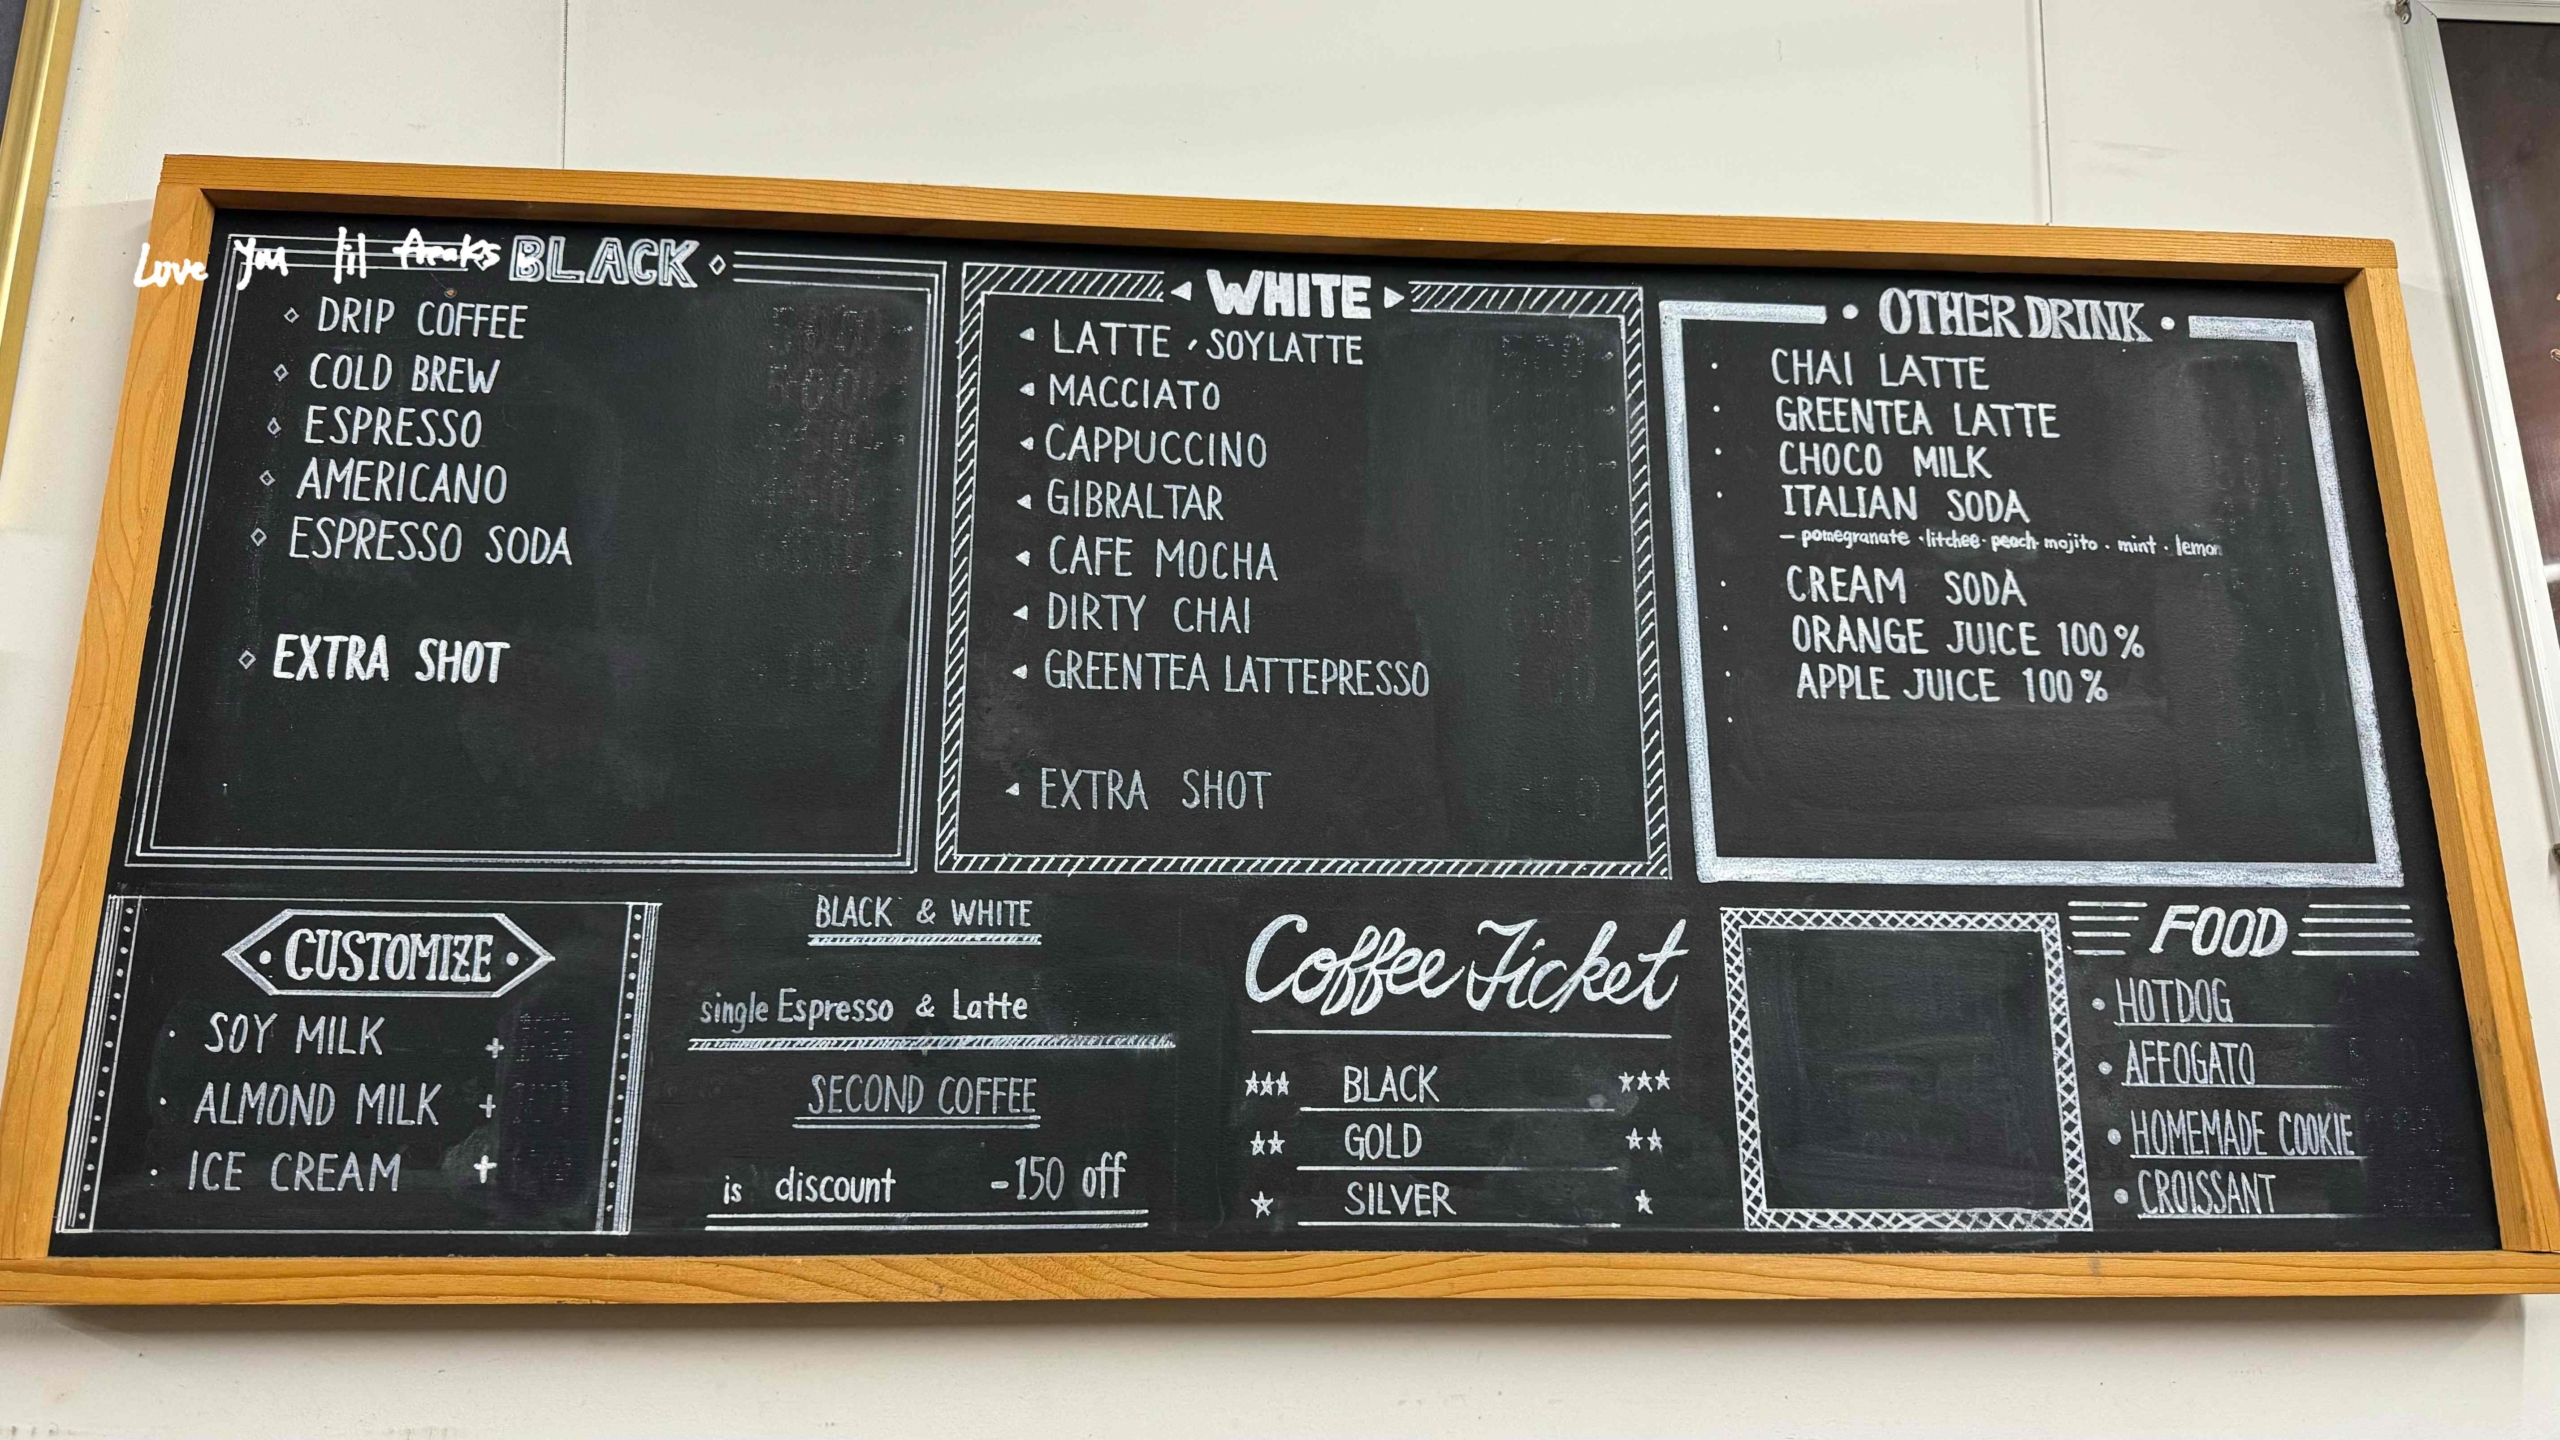 Love you lil freaks
BLACK
DRIP COFFEE
COLD BREW
ESPRESSO
AMERICANO
ESPRESSO SODA
EXTRA SHOT
WHITE
LATTE, SOYLATTE
MACCIATO
CAPPUCCINO
GIBRALTAR
CAFE MOCHA
DIRTY CHAI
GREENTEA LATTEPRESSO
EXTRA SHOT
OTHER DRINK
CHAI LATTE
GREENTEA LATTE
CHOCO MILK
ITALIAN SODA
- pomegranate · litchee · peach · mojito · mint · lemon
CREAM SODA
ORANGE JUICE 100%
APPLE JUICE 100%
CUSTOMIZE
SOY MILK +
ALMOND MILK +
ICE CREAM +
BLACK & WHITE
single Espresso & Latte
SECOND COFFEE
is discount -150 off
Coffee Ticket
BLACK
GOLD
SILVER
FOOD
HOTDOG
AFFOGATO
HOMEMADE COOKIE
CROISSANT